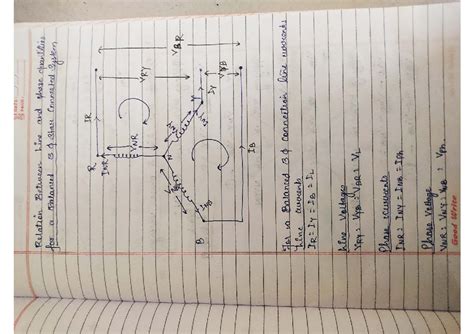 Relation Between Line and phase quantities
for a Balanced 3 φ Star Connected System
VBR
VRY
VYB
IR
IY
VNR
R
INR
N
Y
INB
B
IB
For a Balanced 3 φ connection line currents
Line currents
IR = IY = IB = IL
Line Voltages
VRY = VYB = VBR = VL
Phase currents
INR = INY = INB = IPh
Phase Voltage
VNR = VNY = VNB = VPh
Good Write